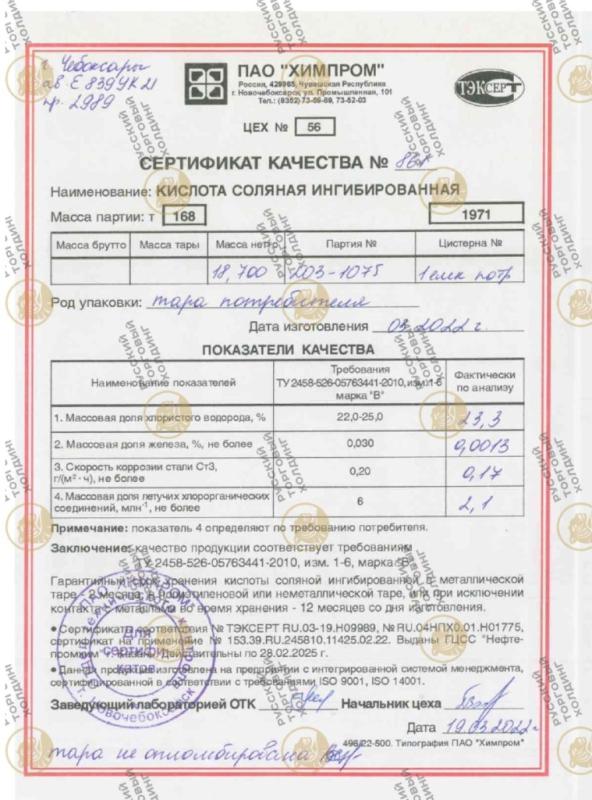 г. Чебоксары
ав. Е 839 УК 21
пр. 2989
ПАО "ХИМПРОМ"
Россия, 429965, Чувашская Республика
г. Новочебоксарск, ул. Промышленная, 101
Тел.: (8352) 73-59-89, 73-52-03
ТЭКСЕРТ
ЦЕХ № 56
СЕРТИФИКАТ КАЧЕСТВА №
Наименование: КИСЛОТА СОЛЯНАЯ ИНГИБИРОВАННАЯ
Масса партии: т 168 1971
Масса брутто Масса тары Масса нетто Партия № Цистерна №
18,700 203-1075 1 емк потр
Род упаковки: тара потребителя
Дата изготовления 03.2022 г.
ПОКАЗАТЕЛИ КАЧЕСТВА
Наименование показателей Требования ТУ 2458-526-05763441-2010, изм.1-6 марка "В" Фактически по анализу
1. Массовая доля хлористого водорода, % 22,0-25,0 23,3
2. Массовая доля железа, %, не более 0,030 0,0013
3. Скорость коррозии стали Ст3, г/(м² · ч), не более 0,20 0,17
4. Массовая доля летучих хлорорганических соединений, млн⁻¹, не более 6 2,1
Примечание: показатель 4 определяют по требованию потребителя.
Заключение: качество продукции соответствует требованиям
ТУ 2458-526-05763441-2010, изм. 1-6, марка "В"
Гарантийный срок хранения кислоты соляной ингибированной в металлической
таре - 2 месяца, в полиэтиленовой или неметаллической таре, или при исключении
контакта с металлами во время хранения - 12 месяцев со дня изготовления.
• Сертификат соответствия № ТЭКСЕРТ RU.03-19.Н09989, № RU.04НПХ0.01.Н01775,
сертификат на применение № 153.39.RU.245810.11425.02.22. Выданы ГЦСС "Нефте-
промхим", г. Казань. Действительны по 28.02.2025 г.
• Данная продукция изготовлена на предприятии с интегрированной системой менеджмента,
сертифицированной в соответствии с требованиями ISO 9001, ISO 14001.
Для
сертифи-
катов
г. Новочебоксарск
Заведующий лабораторией ОТК Начальник цеха
Дата 19.03.2022г
496/22-500. Типография ПАО "Химпром"
тара не опломбирована
РУССКИЙ ТОРГОВЫЙ ХОЛДИНГ